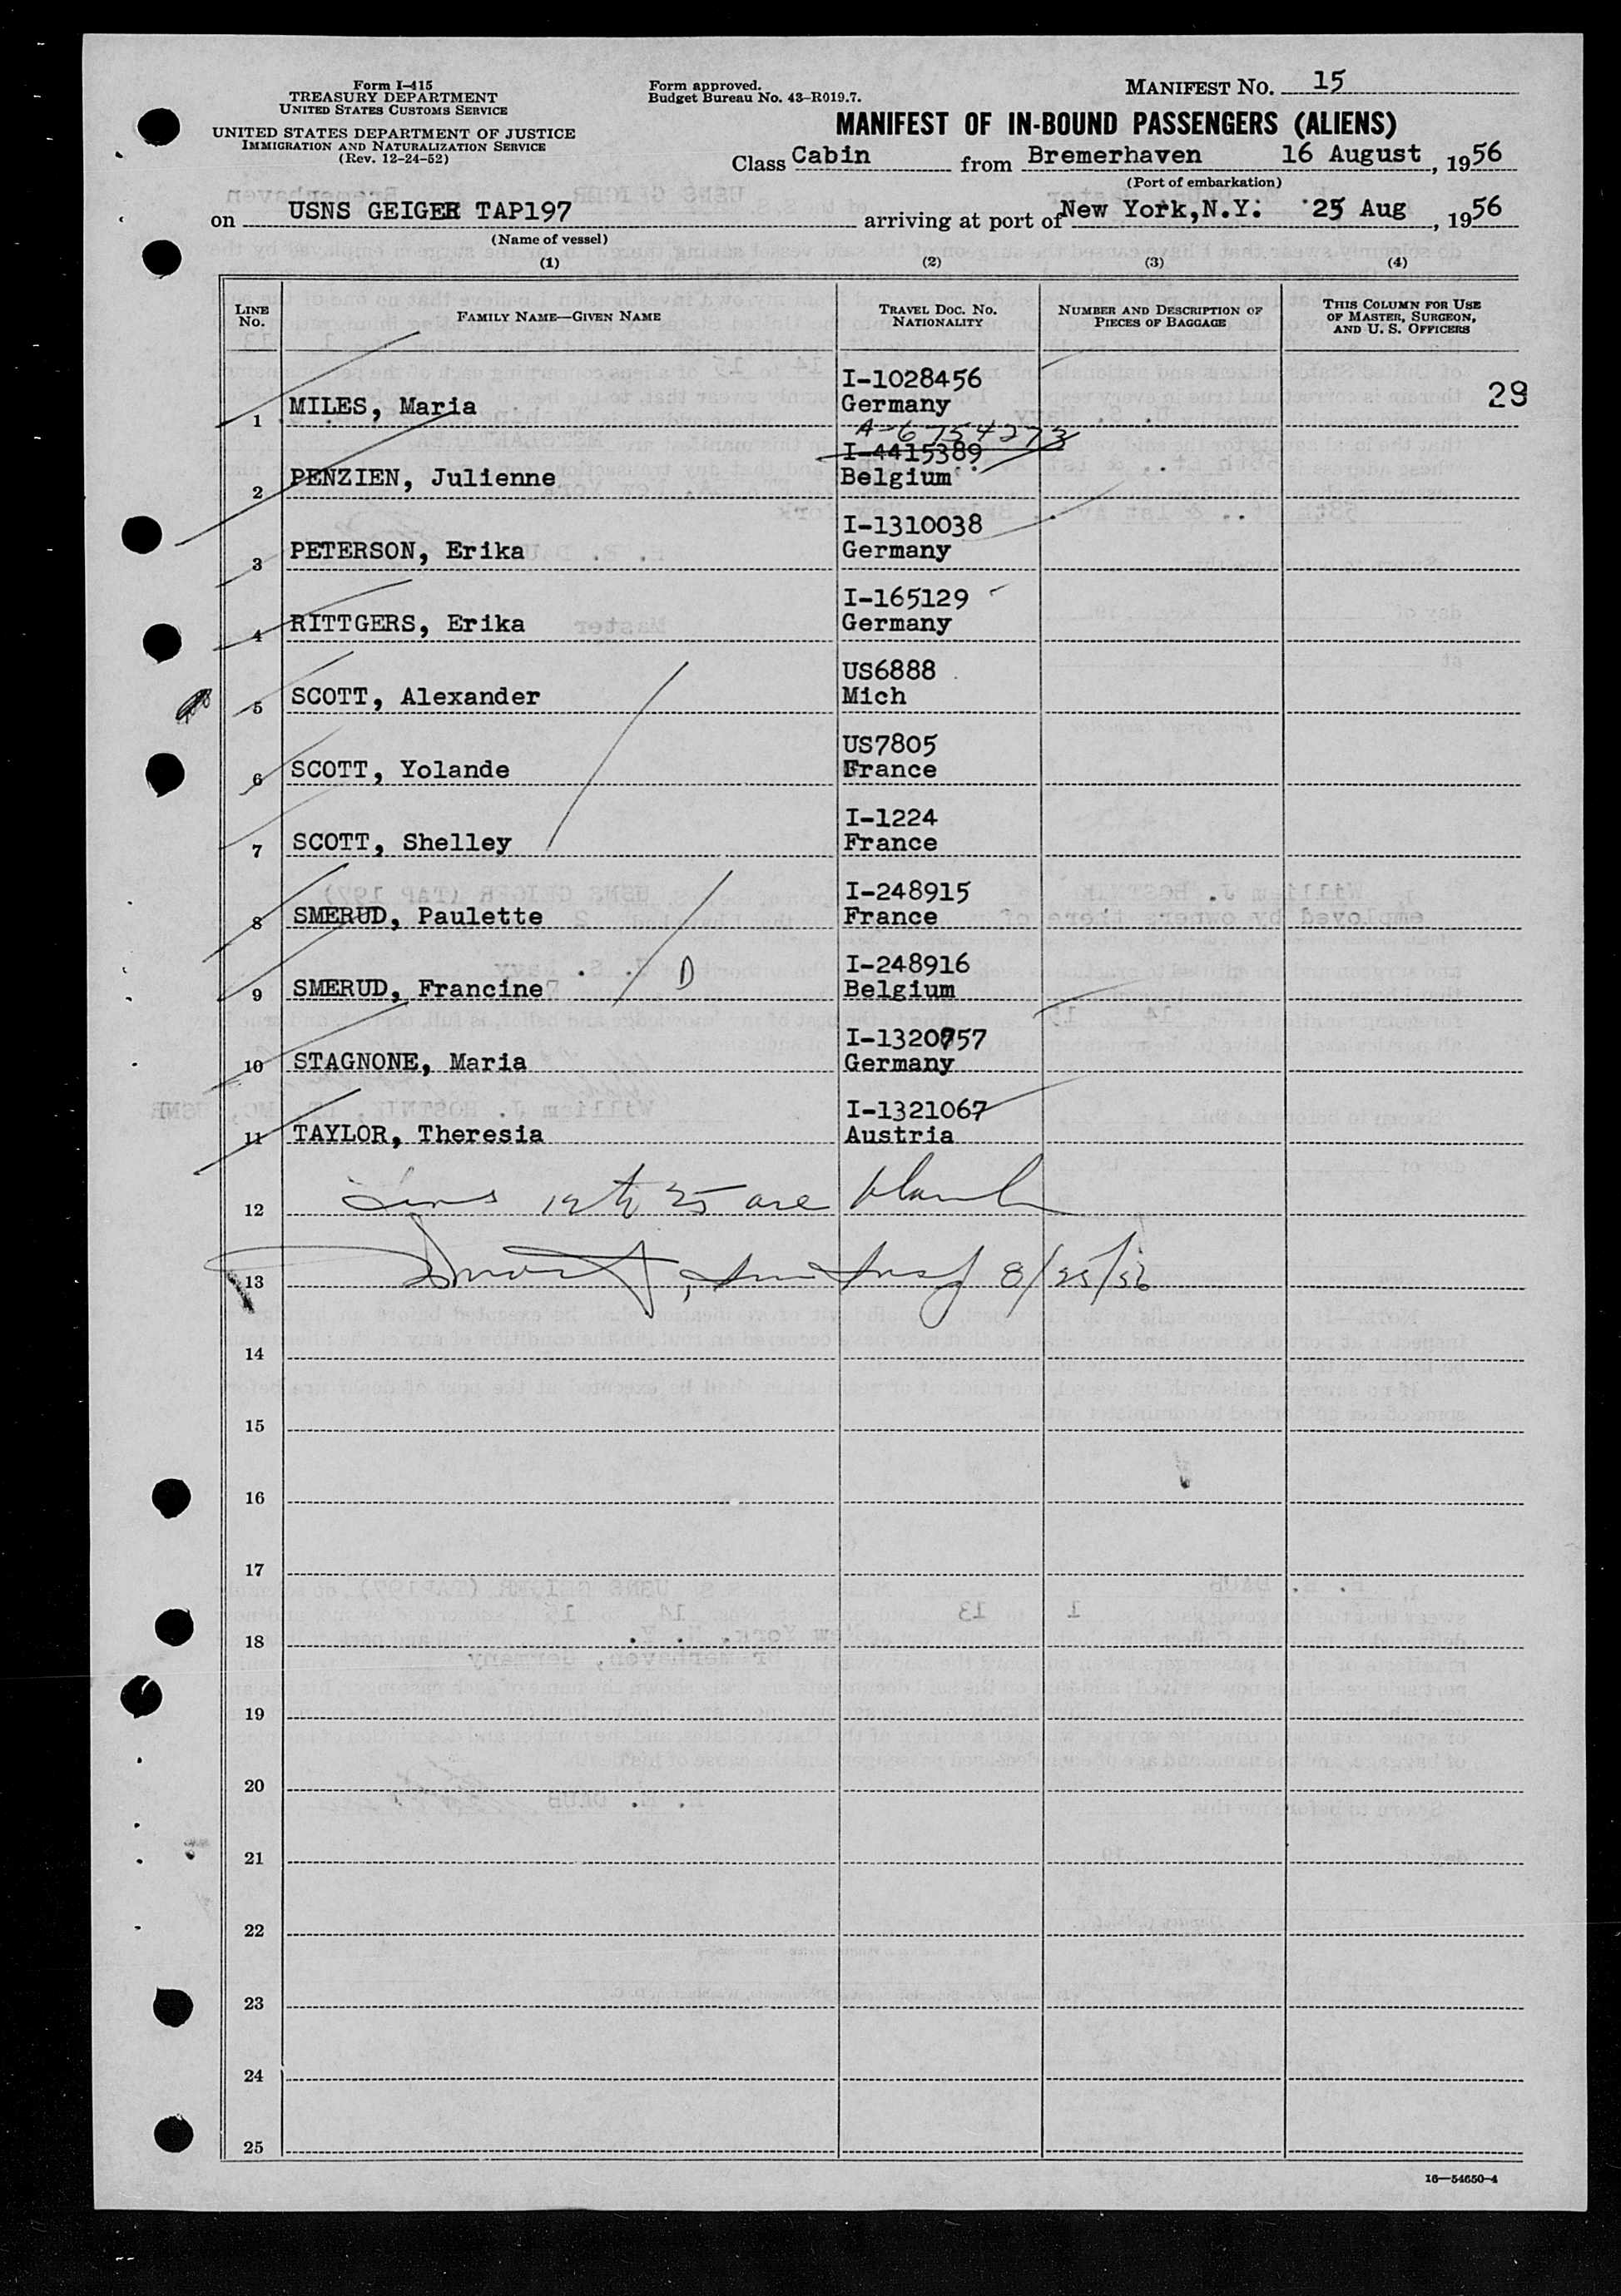 Form I-415
TREASURY DEPARTMENT
UNITED STATES CUSTOMS SERVICE
UNITED STATES DEPARTMENT OF JUSTICE
IMMIGRATION AND NATURALIZATION SERVICE
(Rev. 12-24-52)
Form approved.
Budget Bureau No. 43-R019.7.
MANIFEST NO. 15
MANIFEST OF IN-BOUND PASSENGERS (ALIENS)
Class Cabin from Bremerhaven 16 August, 1956
(Port of embarkation)
on USNS GEIGER TAP197 arriving at port of New York, N.Y. 25 Aug, 1956
(Name of vessel)
(1) (2) (3) (4)
LINE NO. FAMILY NAME—GIVEN NAME TRAVEL DOC. NO. NATIONALITY NUMBER AND DESCRIPTION OF PIECES OF BAGGAGE THIS COLUMN FOR USE OF MASTER, SURGEON, AND U. S. OFFICERS
I-1028456
1 MILES, Maria Germany 29
A-6754273
I-4415389
2 PENZIEN, Julienne Belgium
I-1310038
3 PETERSON, Erika Germany
I-165129
4 RITTGERS, Erika Germany
US6888
5 SCOTT, Alexander Mich
US7805
6 SCOTT, Yolande France
I-1224
7 SCOTT, Shelley France
I-248915
8 SMERUD, Paulette France
I-248916
9 SMERUD, Francine D Belgium
10 STAGNONE, Maria Germany
I-1321067
11 TAYLOR, Theresia Austria
12 Lines 12 to 25 are blank
13 8/25/56
14
15
16
17
18
19
20
21
22
23
24
25
16—54650-4